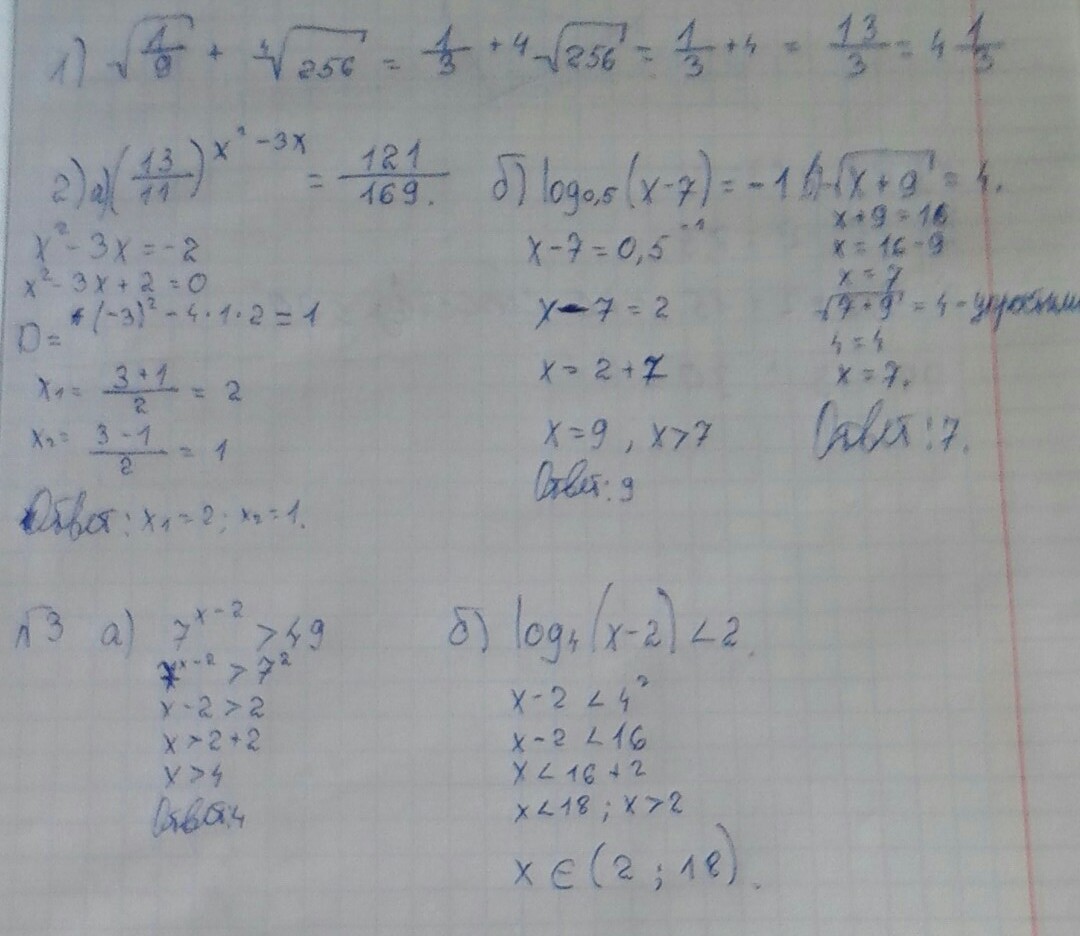 1) √(1/9) + ⁴√256 = 1/3 + 4√256 = 1/3 + 4 = 13/3 = 4 1/3
2) а) (13/11)^(x² - 3x) = 121/169.
x² - 3x = -2
x² - 3x + 2 = 0
D = (-3)² - 4·1·2 = 1
x₁ = (3+1)/2 = 2
x₂ = (3-1)/2 = 1
Ответ: x₁ = 2; x₂ = 1.
б) log₀,₅(x-7) = -1
x-7 = 0,5⁻¹
x-7 = 2
x = 2+7
x = 9, x>7
Ответ: 9
√(x+9) = 4.
x+9 = 16
x = 16-9
x = 7
√(7+9) = 4 -
4 = 4
x = 7.
Ответ: 7.
№3 а) 7^(x-2) > 49
7^(x-2) > 7²
x-2 > 2
x > 2+2
x > 4
Ответ: 4
б) log₄(x-2) < 2.
x-2 < 4²
x-2 < 16
x < 16+2
x < 18; x > 2
x ∈ (2; 18).